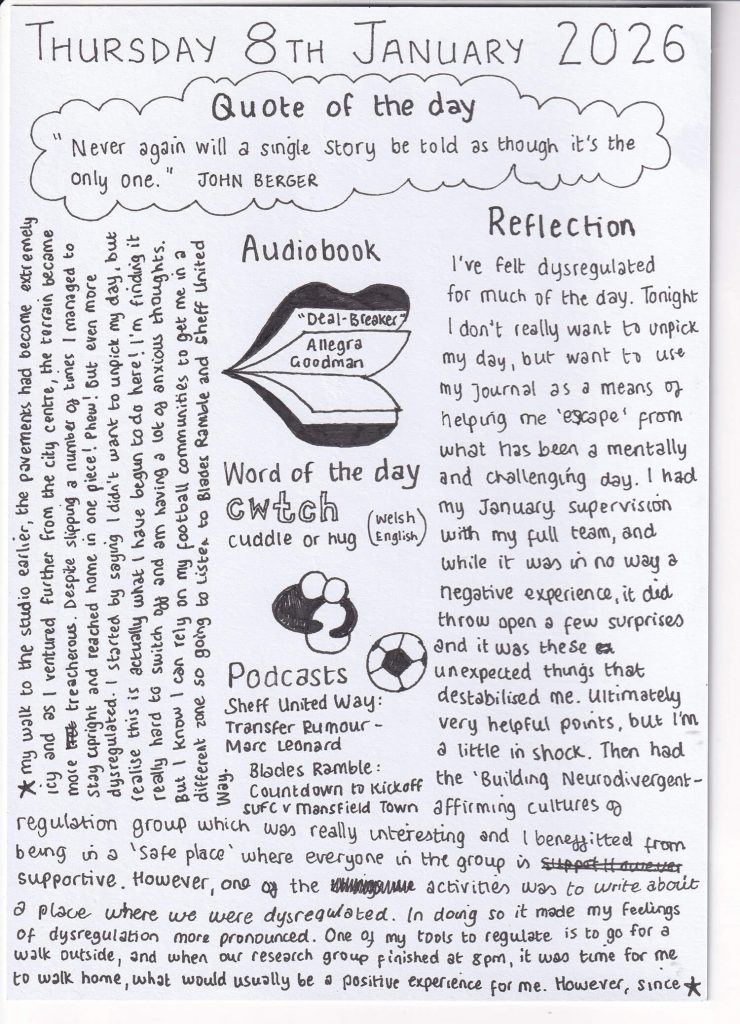 THURSDAY 8TH JANUARY 2026
Quote of the day
"Never again will a single story be told as though it's the
only one." JOHN BERGER
Audiobook
"Deal-Breaker"
Allegra
Goodman
Word of the day
cwtch
cuddle or hug (Welsh
English)
Podcasts
Sheff United Way:
Transfer Rumour -
Marc Leonard
Blades Ramble:
Countdown to Kickoff
SUFC v Mansfield Town
Reflection
I've felt dysregulated
for much of the day. Tonight
I don't really want to unpick
my day, but want to use
my journal as a means of
helping me 'escape' from
what has been a mentally
and challenging day. I had
my January supervision
with my full team, and
while it was in no way a
negative experience, it did
throw open a few surprises
and it was these
unexpected things that
destabilised me. Ultimately
very helpful points, but I'm
a little in shock. Then had
the 'Building Neurodivergent-
affirming cultures of
regulation group which was really interesting and I benefitted from
being in a 'safe place' where everyone in the group is
supportive. However, one of the activities was to write about
a place where we were dysregulated. In doing so it made my feelings
of dysregulation more pronounced. One of my tools to regulate is to go for a
walk outside, and when our research group finished at 8pm, it was time for me
to walk home, what would usually be a positive experience for me. However, since ★
★ my walk to the studio earlier, the pavements had become extremely
icy and as I ventured further from the city centre, the terrain became
more treacherous. Despite slipping a number of times I managed to
stay upright and reached home in one piece! Phew! But even more
dysregulated. I started by saying I didn't want to unpick my day, but
realise this is actually what I have begun to do here! I'm finding it
really hard to switch off and am having a lot of anxious thoughts.
But I know I can rely on my football communities to get me in a
different zone so going to listen to Blades Ramble and Sheff United
Way.